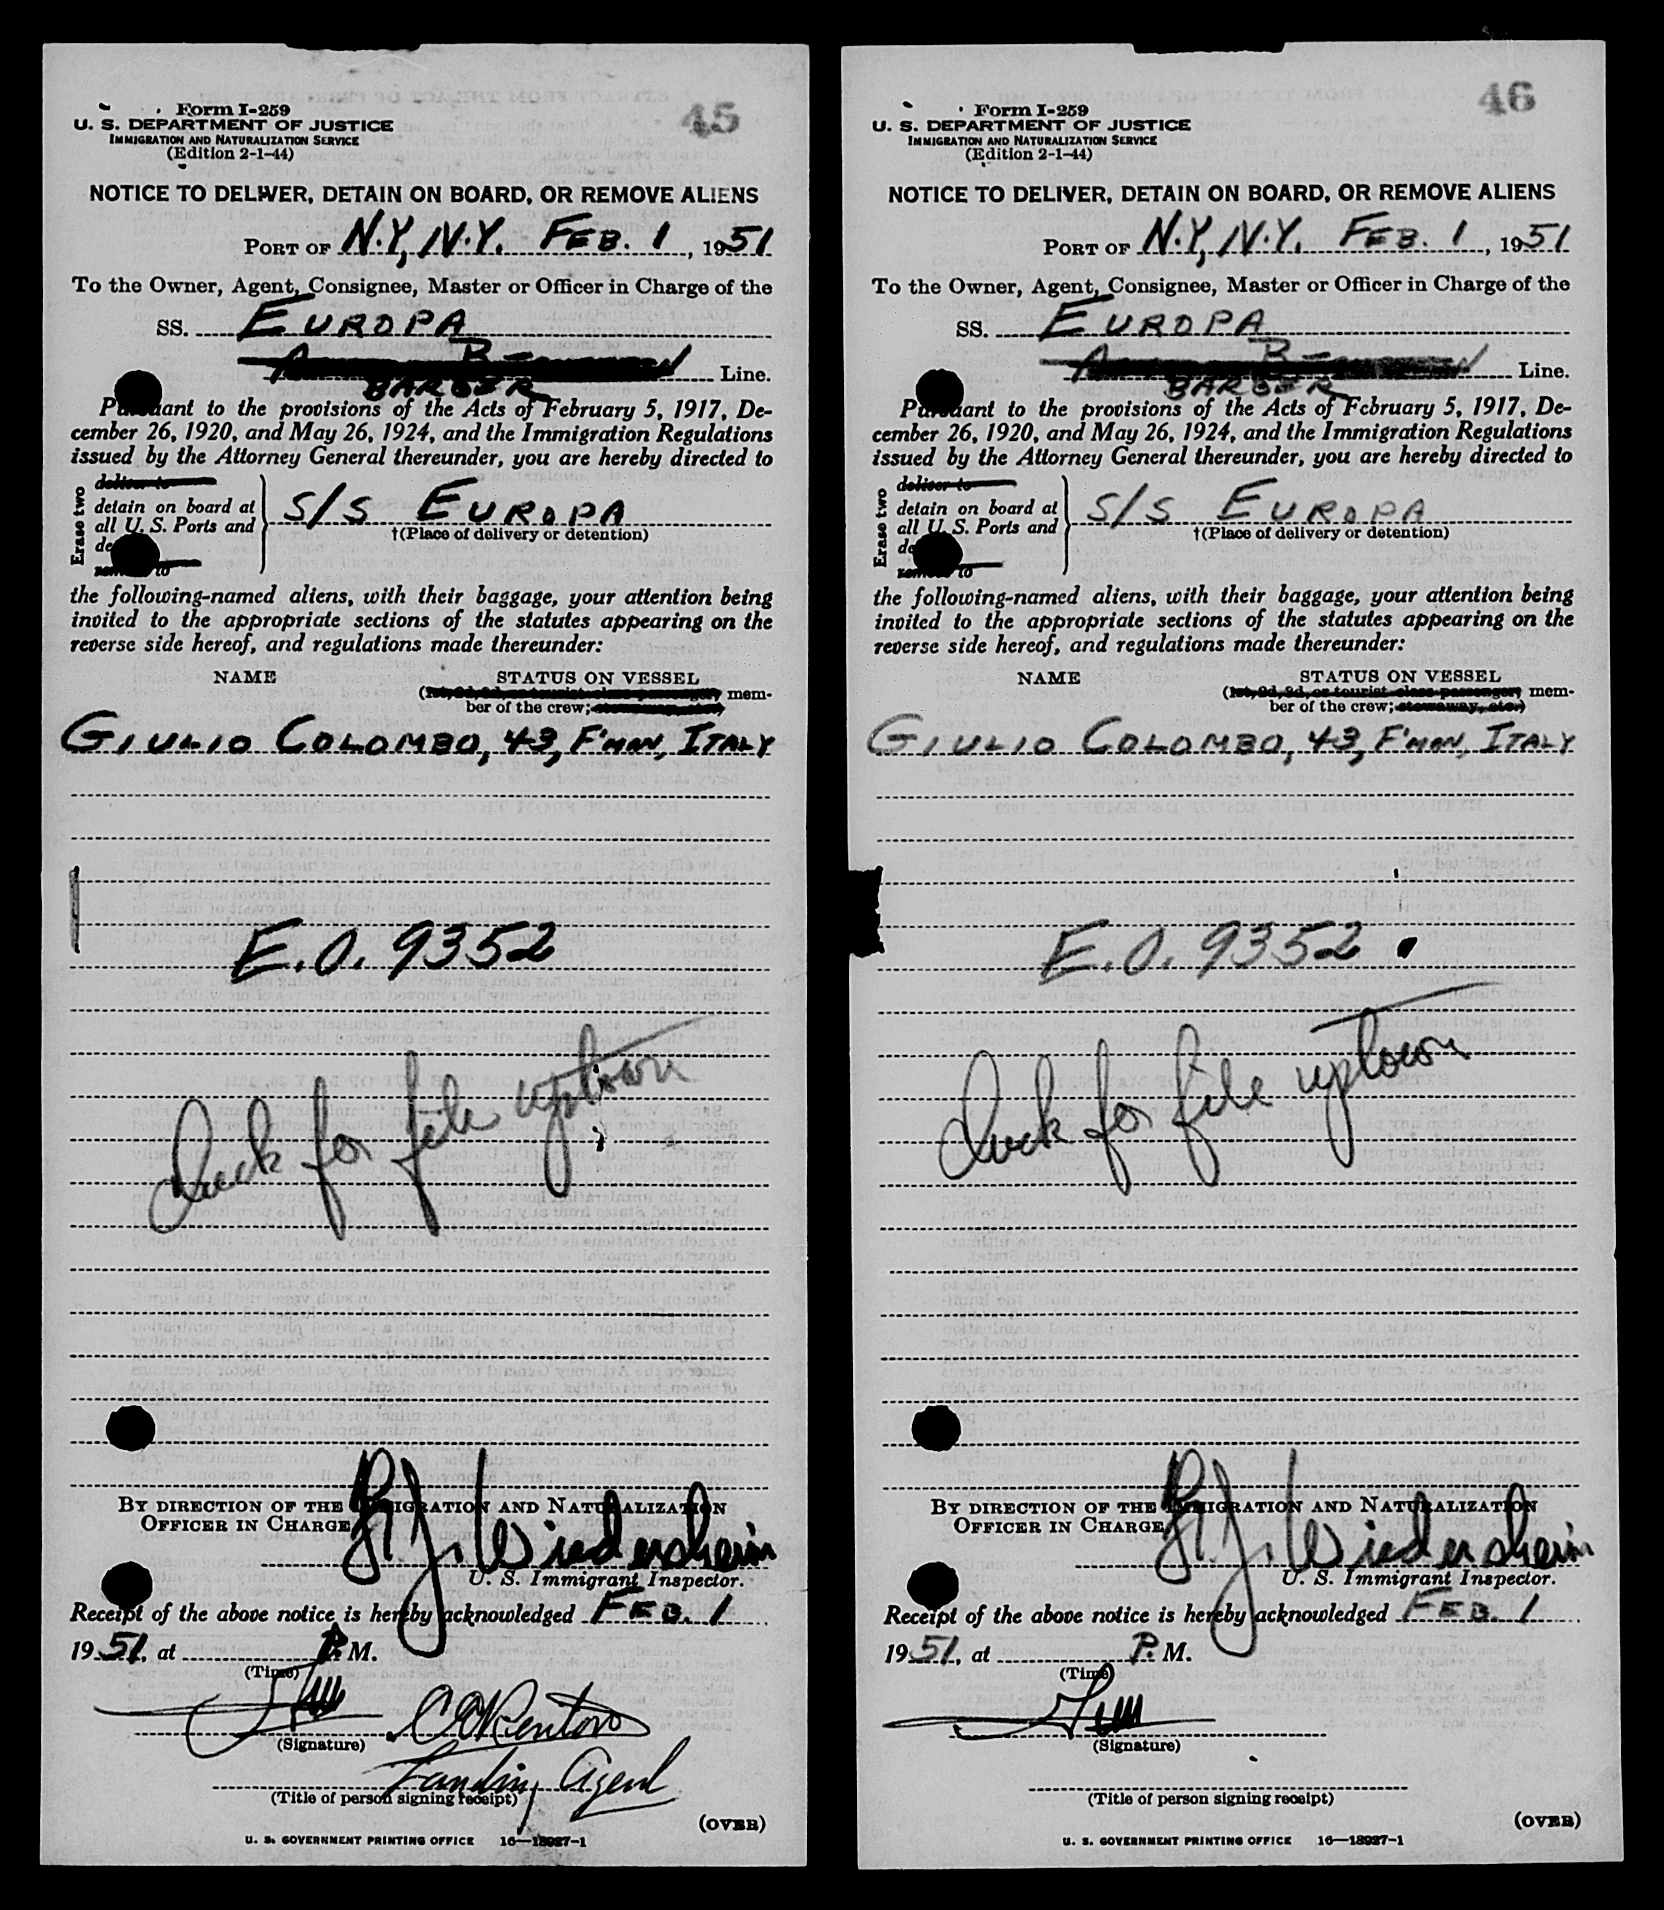 45
Form I-259
U. S. DEPARTMENT OF JUSTICE
IMMIGRATION AND NATURALIZATION SERVICE
(Edition 2-1-44)
NOTICE TO DELIVER, DETAIN ON BOARD, OR REMOVE ALIENS
PORT OF N.Y., N.Y. FEB. 1, 1951
To the Owner, Agent, Consignee, Master or Officer in Charge of the
SS. EUROPA
Line.
BARBER
Pursuant to the provisions of the Acts of February 5, 1917, De-
cember 26, 1920, and May 26, 1924, and the Immigration Regulations
issued by the Attorney General thereunder, you are hereby directed to
Erase two
deliver to
detain on board at
all U. S. Ports and
S/S EUROPA
†(Place of delivery or detention)
remove to
the following-named aliens, with their baggage, your attention being
invited to the appropriate sections of the statutes appearing on the
reverse side hereof, and regulations made thereunder:
NAME STATUS ON VESSEL
(1st, 2d, 3d, or tourist class passenger, mem-
ber of the crew; stowaway, etc.)
GIULIO COLOMBO, 43, F'MAN, ITALY
E.O. 9352
for file uptown
BY DIRECTION OF THE IMMIGRATION AND NATURALIZATION
OFFICER IN CHARGE
Wiedersheim
U. S. Immigrant Inspector.
Receipt of the above notice is hereby acknowledged FEB. 1
1951, at P. M.
(Time)
(Signature)
Landing Agent
(Title of person signing receipt)
(OVER)
U. S. GOVERNMENT PRINTING OFFICE 16—18927-1
46
Form I-259
U. S. DEPARTMENT OF JUSTICE
IMMIGRATION AND NATURALIZATION SERVICE
(Edition 2-1-44)
NOTICE TO DELIVER, DETAIN ON BOARD, OR REMOVE ALIENS
PORT OF N.Y., N.Y. FEB. 1, 1951
To the Owner, Agent, Consignee, Master or Officer in Charge of the
SS. EUROPA
Line.
BARBER
Pursuant to the provisions of the Acts of February 5, 1917, De-
cember 26, 1920, and May 26, 1924, and the Immigration Regulations
issued by the Attorney General thereunder, you are hereby directed to
Erase two
deliver to
detain on board at
all U. S. Ports and
S/S EUROPA
†(Place of delivery or detention)
remove to
the following-named aliens, with their baggage, your attention being
invited to the appropriate sections of the statutes appearing on the
reverse side hereof, and regulations made thereunder:
NAME STATUS ON VESSEL
(1st, 2d, 3d, or tourist class passenger, mem-
ber of the crew; stowaway, etc.)
GIULIO COLOMBO, 43, F'MAN, ITALY
E.O. 9352
for file uptown
BY DIRECTION OF THE IMMIGRATION AND NATURALIZATION
OFFICER IN CHARGE
Wiedersheim
U. S. Immigrant Inspector.
Receipt of the above notice is hereby acknowledged FEB. 1
1951, at P. M.
(Time)
(Signature)
(Title of person signing receipt)
(OVER)
U. S. GOVERNMENT PRINTING OFFICE 16—18927-1